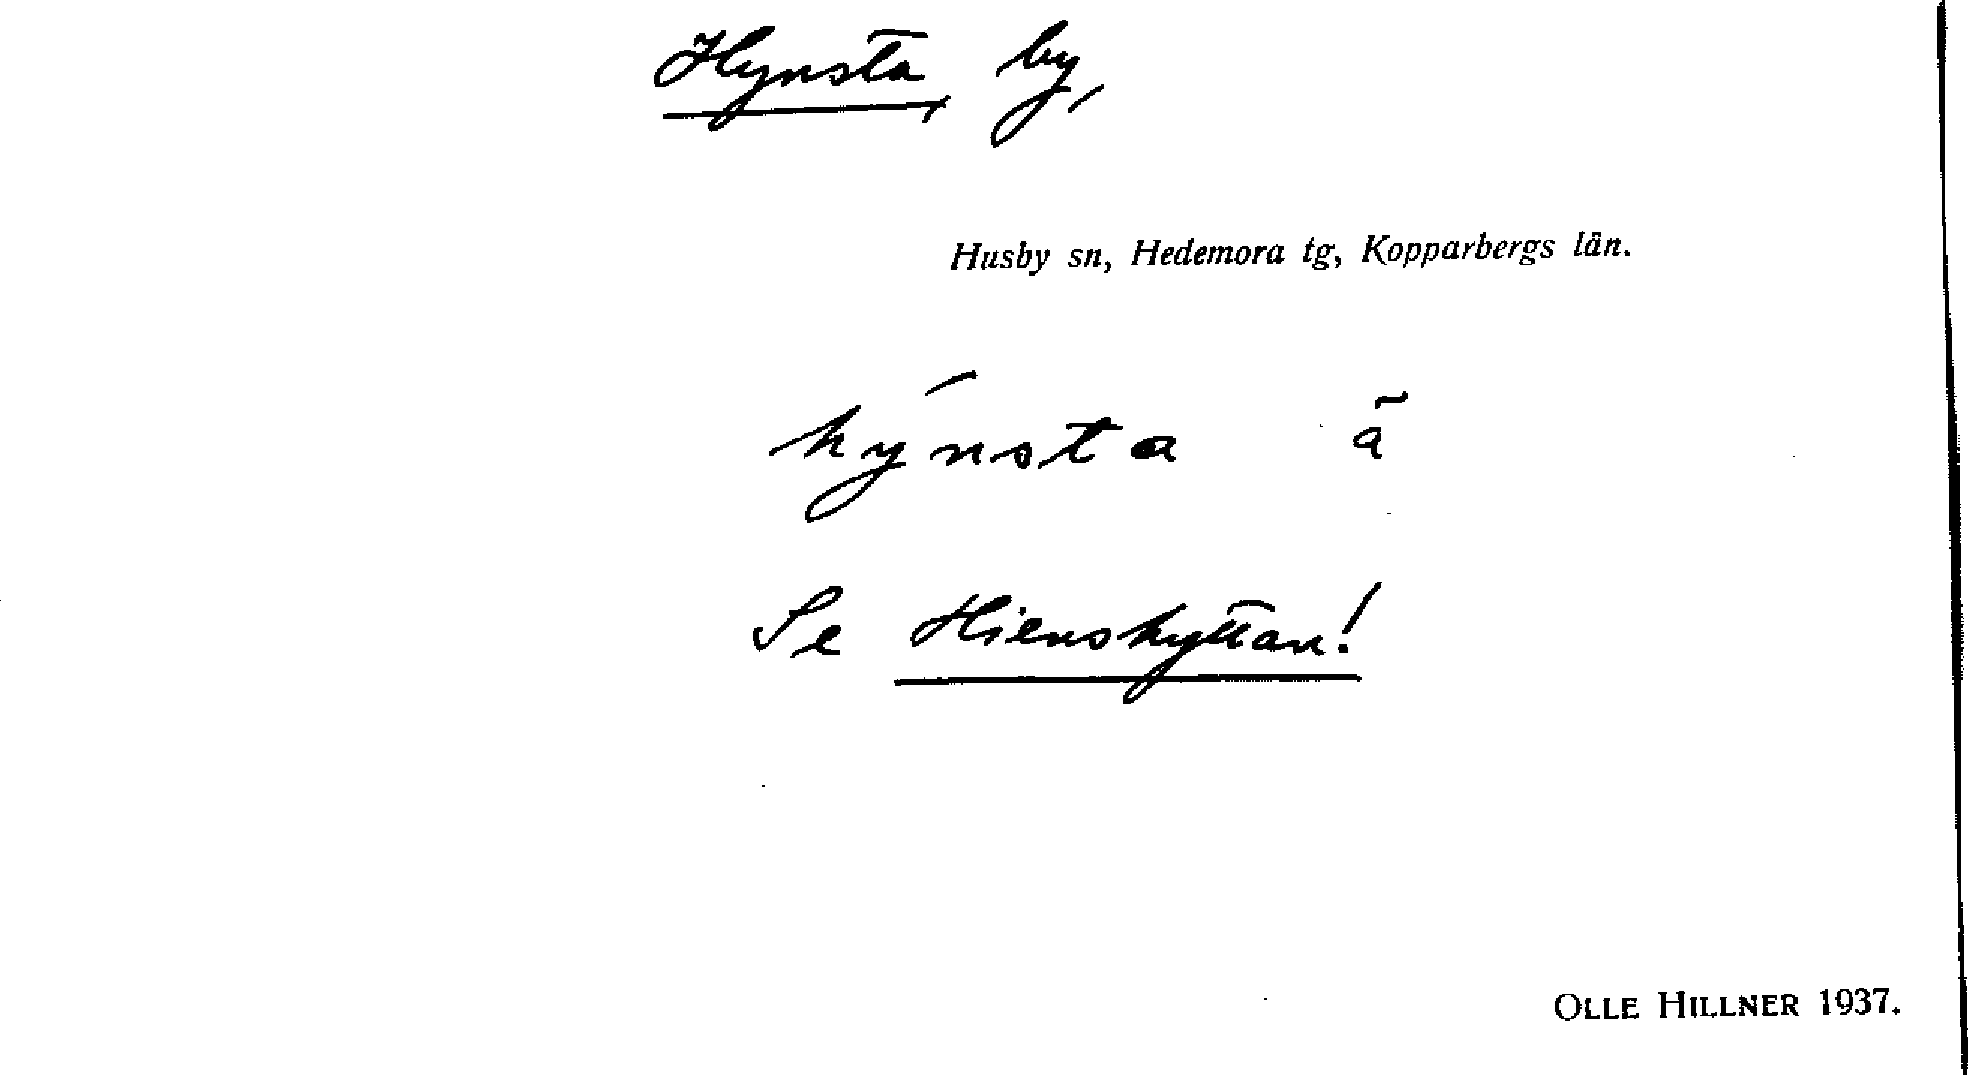 Hynsta, by,
Husby sn, Hedemora tg, Kopparbergs län.
hýnsta ã
Se Hienshyttan!
OLLE HILLNER 1937.